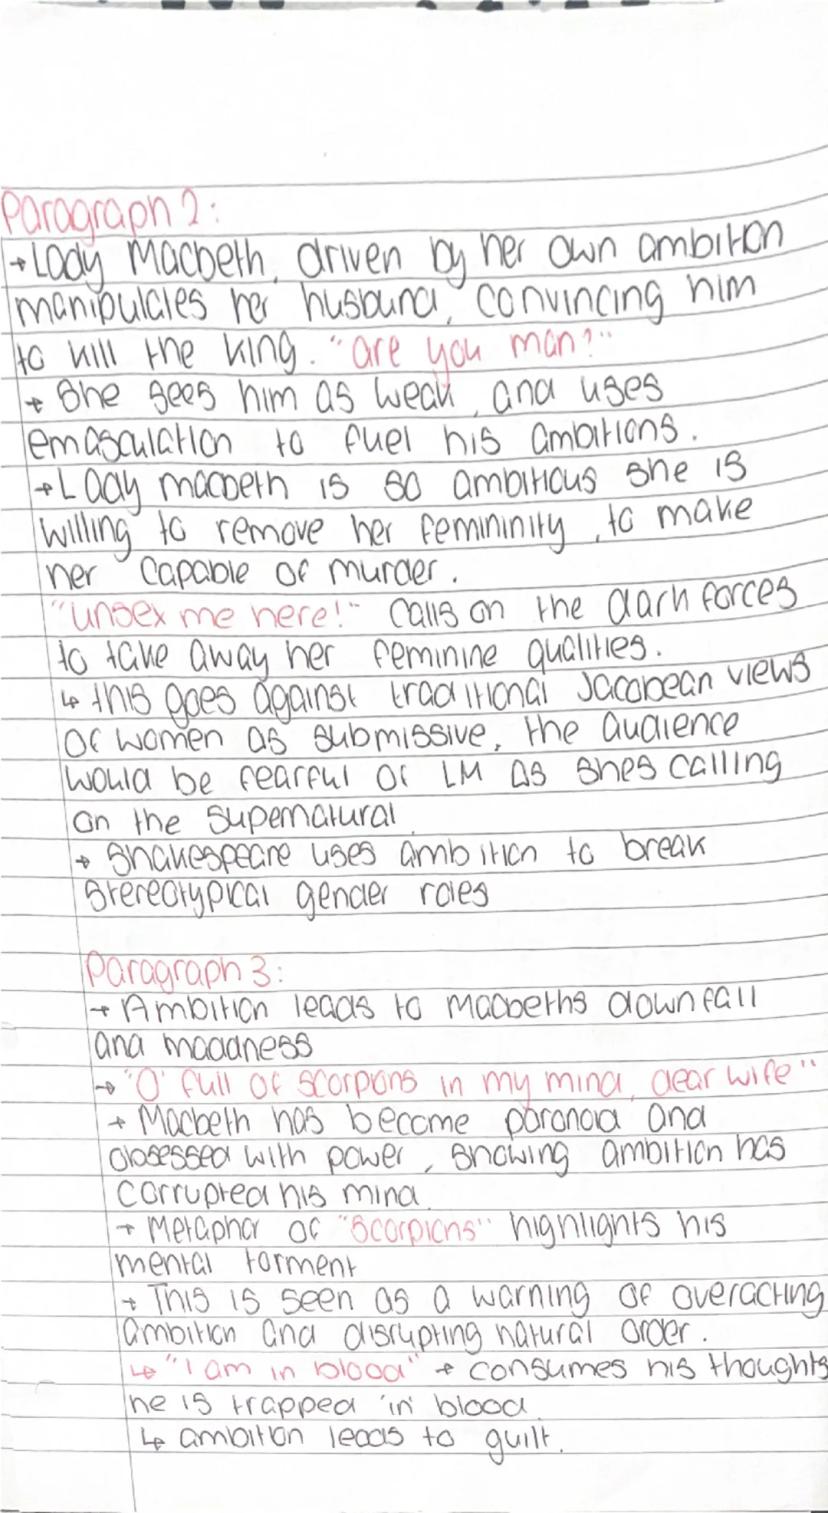 Paragraph 2:
→ Lady Macbeth, driven by her own ambition
manipulates her husband, convincing him
to kill the king. "are you man?"
→ She sees him as weak, and uses
emasculation to fuel his ambitions.
→ Lady macbeth is so ambitious she is
willing to remove her femininity, to make
her capable of murder.
"unsex me here!" calls on the dark forces
to take away her feminine qualities.
↳ this goes against traditional Jacobean views
of women as submissive, the audience
would be fearful of LM as shes calling
on the supernatural
→ Shakespeare uses ambition to break
stereotypical gender roles
Paragraph 3:
→ Ambition leads to Macbeths downfall
and maadness
→ "O' full of scorpions in my mind, dear wife"
→ Macbeth has become paranoid and
obsessed with power, showing ambition has
corrupted his mind.
→ Metaphor of "scorpions" highlights his
mental torment
→ This is seen as a warning of overacting
ambition and disrupting natural order.
↳ "I am in blood" → consumes his thoughts
he is trapped 'in' blood
↳ ambition leads to guilt.